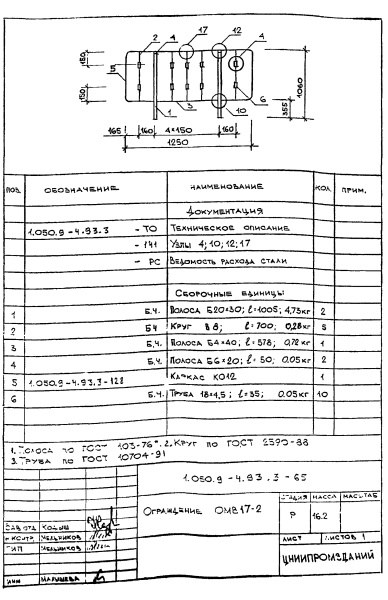 17
12
2
4
4
5
6
1
3
10
150
150
355
1060
165
160
4×150
160
1250
ПОЗ.
ОБОЗНАЧЕНИЕ
НАИМЕНОВАНИЕ
КОЛ
ПРИМ.
ДОКУМЕНТАЦИЯ
1.050.9-4.93.3 - ТО ТЕХНИЧЕСКОЕ ОПИСАНИЕ
- 141 УЗЛЫ 4; 10; 12; 17
- РС ВЕДОМОСТЬ РАСХОДА СТАЛИ
СБОРОЧНЫЕ ЕДИНИЦЫ
1 Б.Ч. ПОЛОСА Б20×30; ℓ=1005; 4,73кг 2
2 БЧ КРУГ В8; ℓ=700; 0,28кг 5
3 Б.Ч. ПОЛОСА Б4×40; ℓ=578; 0,72кг 1
4 Б.Ч. ПОЛОСА Б6×20; ℓ=50; 0.05кг 2
5 1.050.9-4.93.3-128 КАРКАС КО12 1
6 Б.Ч. ТРУБА 18×4,5; ℓ=35; 0.05кг 10
1. ПОЛОСА ПО ГОСТ 103-76*. 2. КРУГ ПО ГОСТ 2590-88
3. ТРУБА ПО ГОСТ 10704-91
1.050.9-4.93.3-65
ОГРАЖДЕНИЕ ОМВ17-2
СТАДИЯ МАССА МАСШТАБ
Р 16.2
ЛИСТ ЛИСТОВ 1
ЦНИИПРОМЗДАНИЙ
ЗАВ ОТД КОДЫШ
Н КОНТР МЕЛЬНИКОВ
ГИП МЕЛЬНИКОВ
ИНЖ МАЛЫШЕВА